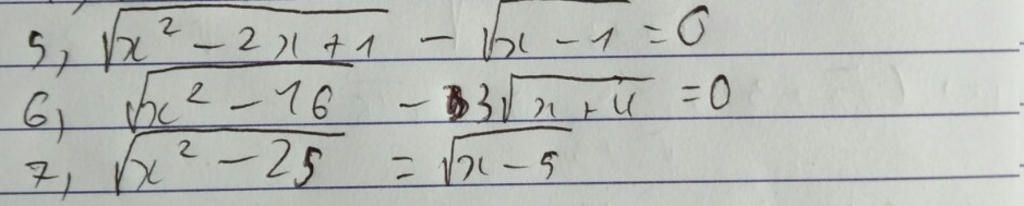 5, √(x² - 2x + 1) - √(x - 1) = 0
6) √(x² - 16) - 3√(x + 4) = 0
7, √(x² - 25) = √(x - 5)